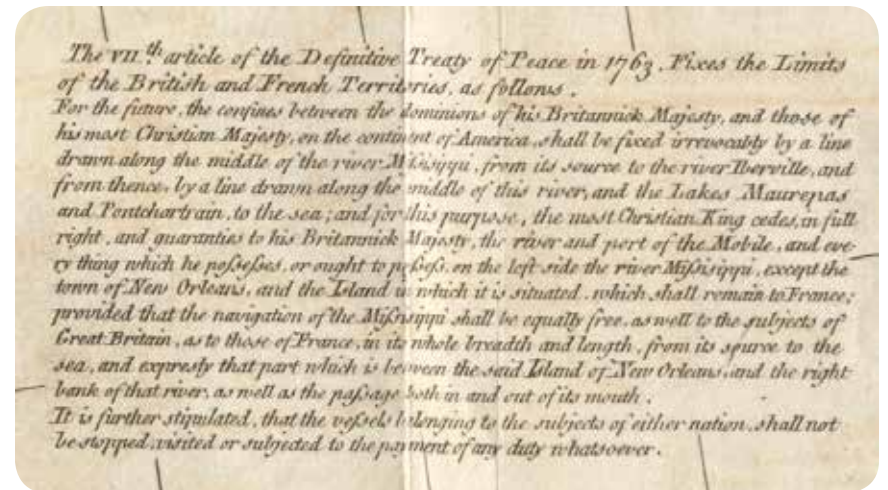 The VII.th article of the Definitive Treaty of Peace in 1763, Fixes the Limits
of the British and French Territories, as follows.
For the future, the confines between the dominions of his Britannick Majesty, and those of
his most Christian Majesty, on the continent of America, shall be fixed irrevocably by a line
drawn along the middle of the river Miſsisippi, from its source to the river Iberville, and
from thence, by a line drawn along the middle of this river, and the Lakes Maurepas
and Pontchartrain, to the sea; and for this purpose, the most Christian King cedes, in full
right, and guaranties to his Britannick Majesty, the river and port of the Mobile, and eve-
ry thing which he poſseſses, or ought to poſseſs, on the left side the river Miſsisippi, except the
town of New Orleans, and the Island in which it is situated, which shall remain to France;
provided that the navigation of the Miſsisippi shall be equally free, as well to the subjects of
Great Britain, as to those of France, in its whole breadth and length, from its source to the
sea, and expresly that part which is between the said Island of New Orleans, and the right
bank of that river, as well as the paſsage both in and out of its mouth.
It is further stipulated, that the veſsels belonging to the subjects of either nation, shall not
be stopped, visited or subjected to the payment of any duty whatsoever.